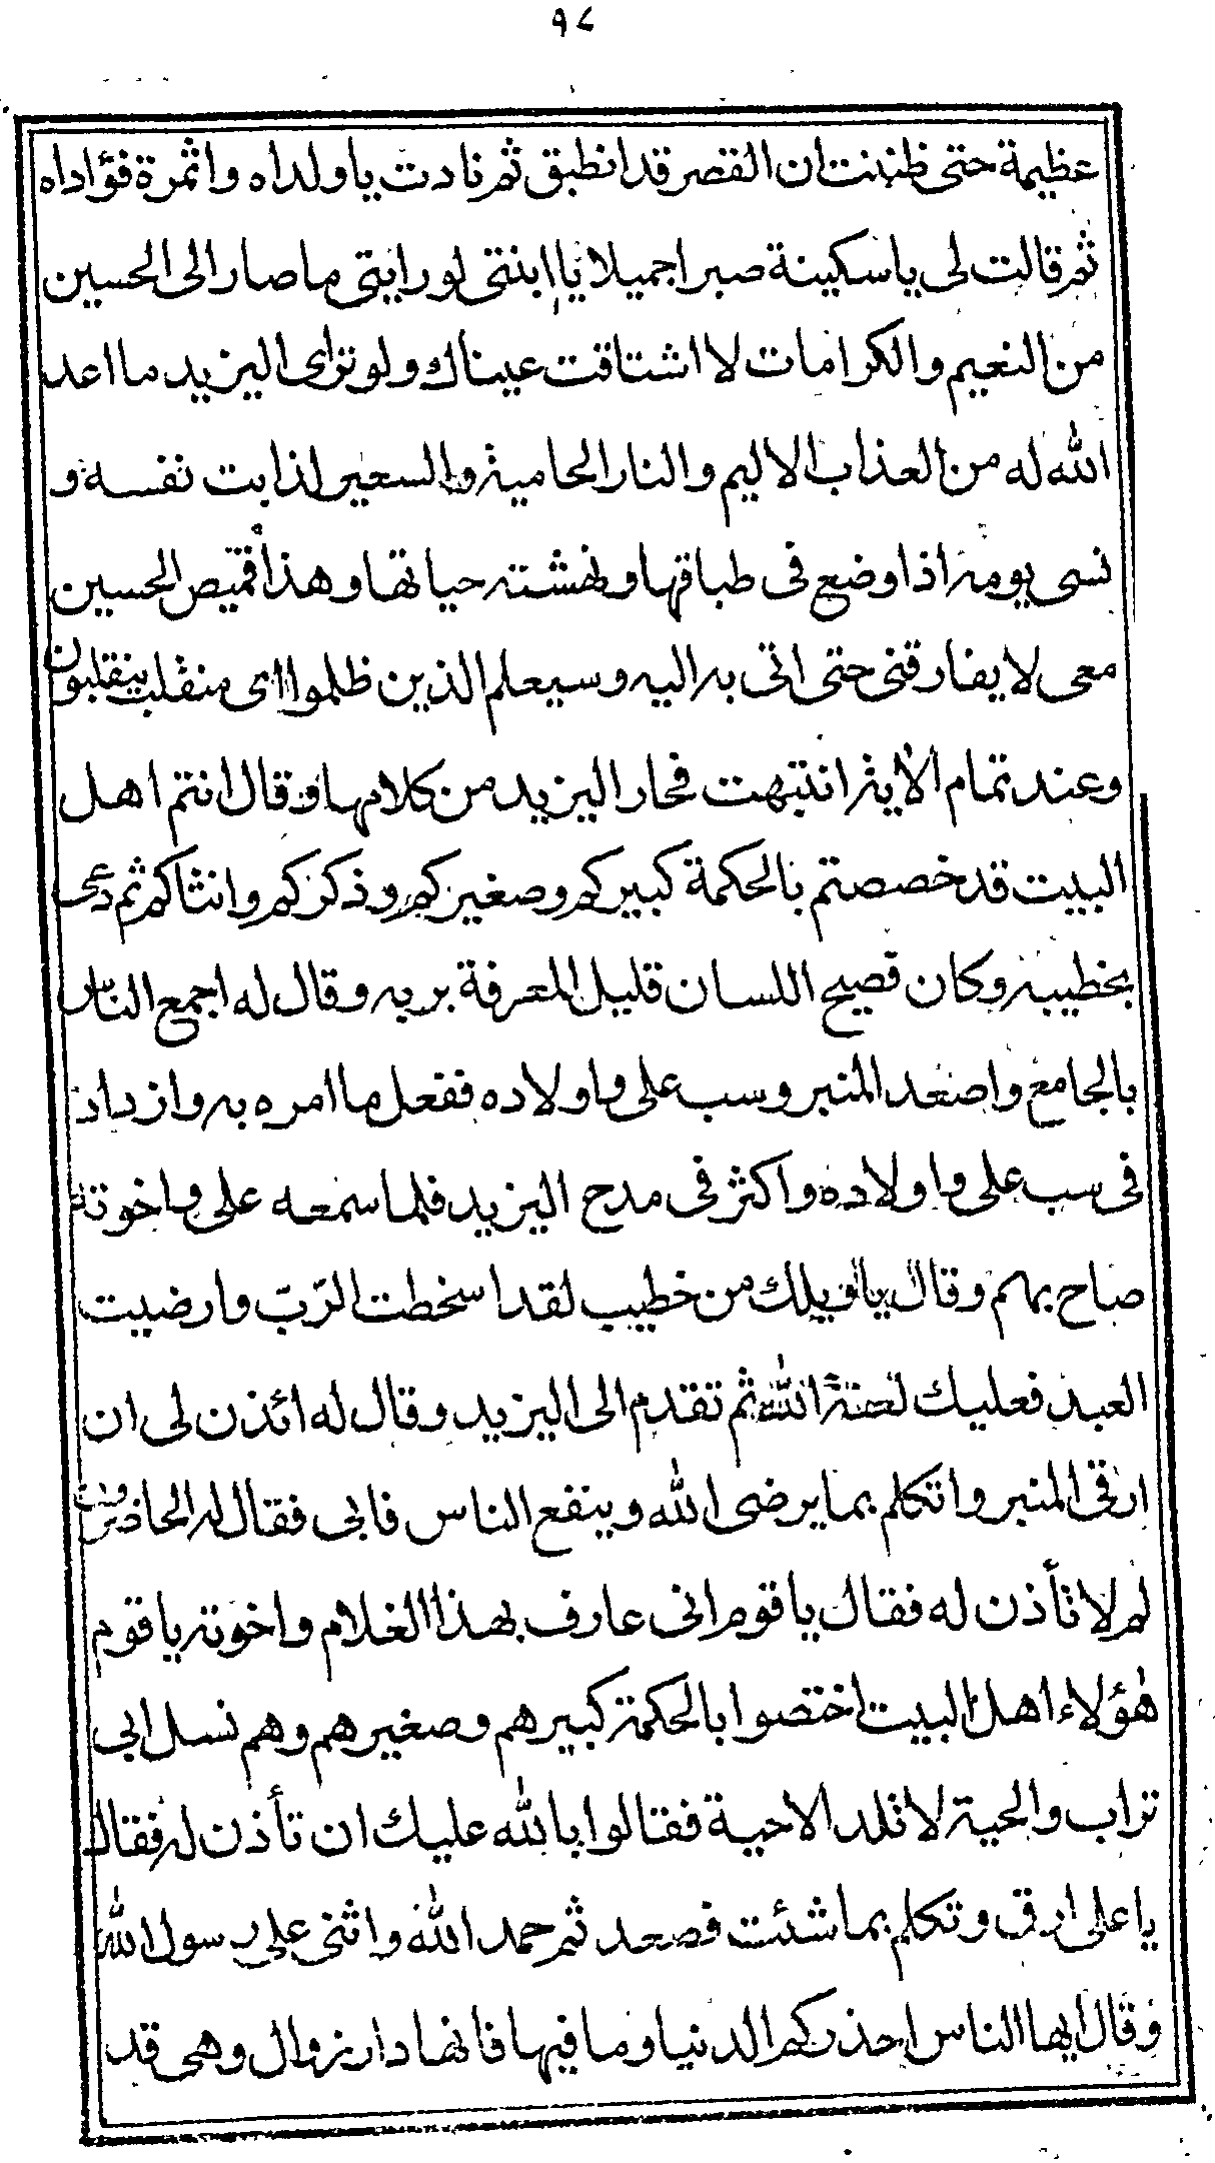 ٩٧
عظيمة حتى ظننت ان القصر قد انطبق ثم نادت يا ولداه واثمرة فؤاداه
ثم قالت لى يا سكينة صبرا جميلا يا ابنتى لو رايتى ما صار الى الحسين
من النعيم والكرامات لا اشتاقت عيناك ولو تراى اليزيد ما اعد
الله له من العذاب الاليم والنار الحامية والسعير لذابت نفسه و
نسى يومه اذا وضع فى طباقها ونهشته حياتها وهذا قميص الحسين
معى لا يفارقنى حتى اتى به اليه وسيعلم الذين ظلموا اى منقلب ينقلبون
وعند تمام الاية انتبهت فحار اليزيد من كلامها وقال انتم اهل
البيت قد خصصتم بالحكمة كبيركم وصغيركم وذكركم وانثاكم ثم دعى
بخطيبه وكان فصيح اللسان قليل المعرفة بربه وقال له اجمع الناس
بالجامع واصعد المنبر وسب على واولاده ففعل ما امره به وازداد
فى سب على واولاده واكثر فى مدح اليزيد فلما سمعه على واخوته
صاح بهم وقال يا ويلك من خطيب لقد اسخطت الرّبّ وارضيت
العبد فعليك لعنة الله ثم تقدم الى اليزيد وقال له ائذن لى ان
ارقى المنبر واتكلم بما يرضى الله وينفع الناس فابى فقال له الحاضرون
لم لا تأذن له فقال يا قوم انى عارف بهذا الغلام واخوته يا قوم
هؤلاء اهل البيت اختصوا بالحكمة كبيرهم وصغيرهم وهم نسل ابى
تراب والحية لا تلد الا حية فقالوا بالله عليك ان تأذن له فقال
يا على ارق وتكلم بما شئت فصعد ثم حمد الله واثنى على رسول الله
وقال ايها الناس احذركم الدنيا وما فيها فانها دار زوال وهى قد